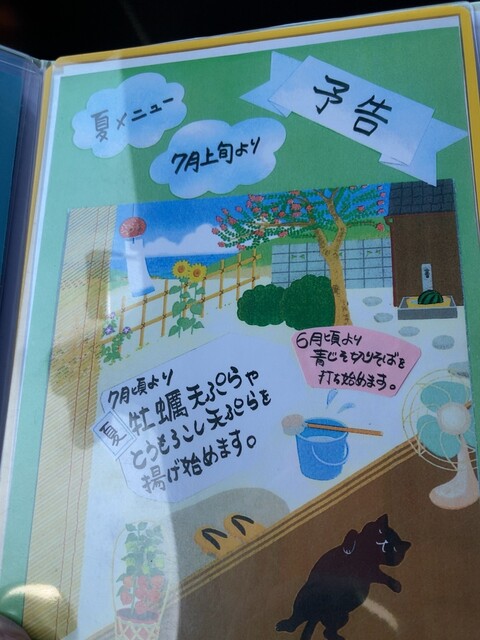 予告
夏メニュー
7月上旬より
6月頃より
青じそ切りそばを
打ち始めます。
7月頃より
夏 牡蠣天ぷらや
とうもろこし天ぷらを
揚げ始めます。